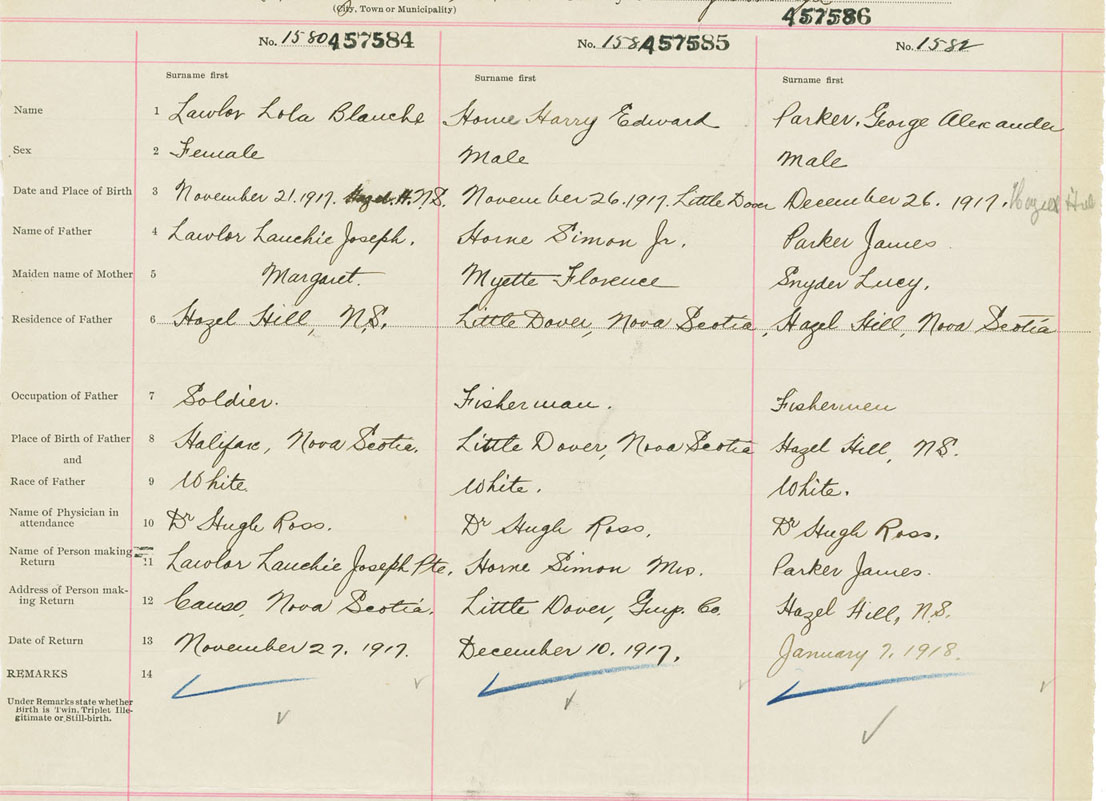 (City, Town or Municipality)
457586
No. 1580 457584 No. 158 457585 No. 1582
Surname first Surname first Surname first
Name 1 Lawlor Lola Blanche Horne Harry Edward Parker, George Alexander
Sex 2 Female Male Male
Date and Place of Birth 3 November 21. 1917. Hazel H. N.S. November 26. 1917. Little Dover December 26. 1917. Hazel Hill
Name of Father 4 Lawlor Lauchie Joseph. Horne Simon Jr. Parker James
Maiden name of Mother 5 Margaret. Myette Florence Snyder Lucy.
Residence of Father 6 Hazel Hill, N.S. Little Dover, Nova Scotia, Hazel Hill, Nova Scotia
Occupation of Father 7 Soldier. Fisherman. Fishermen
Place of Birth of Father 8 Halifax, Nova Scotia. Little Dover, Nova Scotia Hazel Hill, N.S.
and
Race of Father 9 White White. White.
Name of Physician in
attendance 10 Dr Hugh Ross. Dr Hugh Ross. Dr Hugh Ross.
Name of Person making
Return 11 Lawlor Lauchie Joseph Pte. Horne Simon Mrs. Parker James.
Address of Person mak-
ing Return 12 Canso, Nova Scotia. Little Dover, Guy. Co. Hazel Hill, N.S.
Date of Return 13 November 27. 1917. December 10. 1917. January 7. 1918.
REMARKS 14
Under Remarks state whether
Birth is Twin, Triplet Ille-
gitimate or Still-birth.